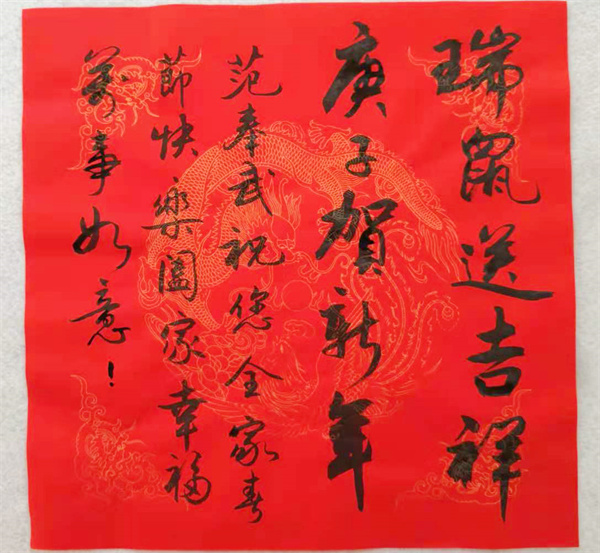 瑞鼠送吉祥
庚子賀新年
范奉武祝您全家春
節快樂闔家幸福
萬事如意！